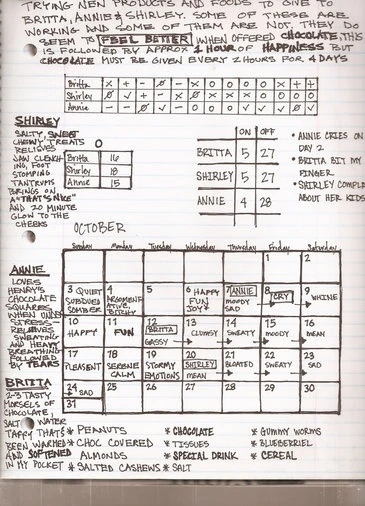 TRYING NEW PRODUCTS AND FOODS TO GIVE TO
BRITTA, ANNIE & SHIRLEY. SOME OF THESE ARE
WORKING AND SOME OF THEM ARE NOT. THEY DO
SEEM TO FEEL BETTER WHEN OFFERED CHOCOLATE, THIS
IS FOLLOWED BY APPROX 1 HOUR OF HAPPINESS BUT
CHOCOLATE MUST BE GIVEN EVERY 2 HOURS FOR 4 DAYS
Britta
Shirley
Annie
SHIRLEY
SALTY, SWEET
CHEWY TREATS
RELIEVES
JAW CLENCH
ING, FOOT
STOMPING
TANTRUMS
BRINGS ON
A "THAT'S NICE"
AND 20 MINUTE
GLOW TO THE
CHEEKS
Britta 16
Shirley 18
Annie 15
ON OFF
BRITTA 5 27
SHIRLEY 5 27
ANNIE 4 28
• ANNIE CRIES ON
DAY 2
• BRITTA BIT MY
FINGER
• SHIRLEY COMPL
ABOUT HER KIDS
OCTOBER
Sunday Monday Tuesday Wednesday Thursday Friday Saturday
1 2
3 QUIET SUBDUED SOMBER
4 ARGUMENTATIVE BITCHY
5
6 HAPPY FUN JOY
7 ANNIE MOODY SAD
8 CRY
9 WHINE
10 HAPPY
11 FUN
12 BRITTA GASSY
13 CLUMSY
14 SWEATY
15 MOODY
16 MEAN
17 PLEASENT
18 SERENE CALM
19 STORMY EMOTIONS
20 SHIRLEY MEAN
21 BLOATED
22 SWEATY
23 SAD
24 SAD
25 26 27 28 29 30
31
ANNIE
LOVES
HENRY'S
CHOCOLATE
SQUARES
WHEN UNDER
STRESS-
RELIEVES
SWEATING
AND HEAVY
BREATHING
FOLLOWED
BY TEARS
BRITTA
2-3 TASTY
MORSELS OF
CHOCOLATE,
SALT WATER
TAFFY THATS
BEEN WARMED
AND SOFTENED
IN MY POCKET
* PEANUTS
* CHOC COVERED
ALMONDS
* SALTED CASHEWS
* CHOCOLATE
* TISSUES
* SPECIAL DRINK
* SALT
* GUMMY WORMS
* BLUEBERRIES
* CEREAL